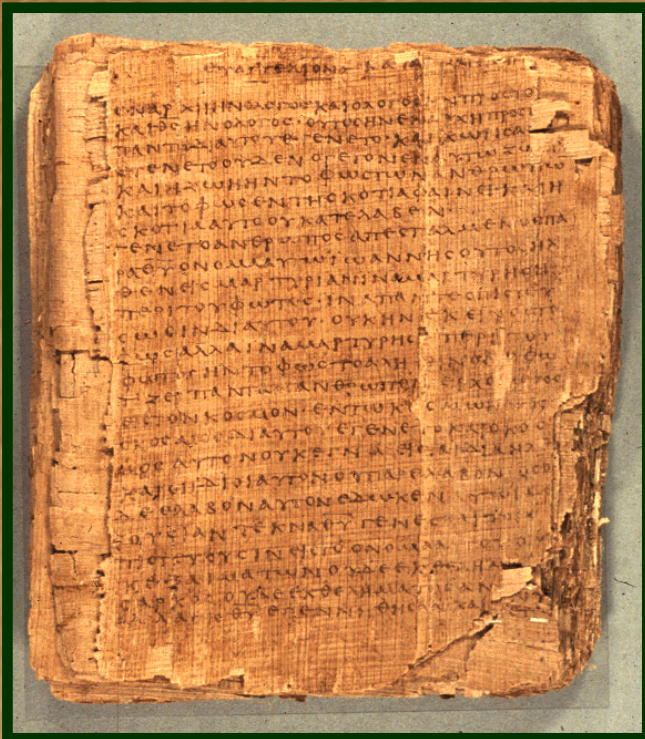 ΕΥΑΓΓΕΛΙΟΝ ΚΑΤΑ
ΕΝ ΑΡΧΗ ΗΝ Ο ΛΟΓΟΣ ΚΑΙ Ο ΛΟΓΟΣ ΗΝ ΠΡΟΣ ΤΟ
ΚΑΙ ΘΣ ΗΝ Ο ΛΟΓΟΣ · ΟΥΤΟΣ ΗΝ ΕΝ ΑΡΧΗ ΠΡΟΣ Τ
ΠΑΝΤΑ ΔΙ ΑΥΤΟΥ ΕΓΕΝΕΤΟ · ΚΑΙ ΧΩΡΙΣ Α
ΕΓΕΝΕΤΟ ΟΥΔΕΝ Ο ΓΕΓΟΝΕΝ ΕΝ ΑΥΤΩ ΖΩ
ΚΑΙ Η ΖΩΗ ΗΝ ΤΟ ΦΩΣ ΤΩΝ ΑΝΘΡΩΠΩ
ΚΑΙ ΤΟ ΦΩΣ ΕΝ ΤΗ ΣΚΟΤΙΑ ΦΑΙΝΕΙ · ΚΑΙ Η
ΣΚΟΤΙΑ ΑΥΤΟ ΟΥ ΚΑΤΕΛΑΒΕΝ ·
ΕΓΕΝΕΤΟ ΑΝΘΡΩΠΟΣ ΑΠΕΣΤΑΛΜΕΝΟΣ ΠΑ
ΡΑ ΘΥ ΟΝΟΜΑ ΑΥΤΩ ΙΩΑΝΝΗΣ ΟΥΤΟΣ ΗΛ
ΘΕΝ ΕΙΣ ΜΑΡΤΥΡΙΑΝ ΙΝΑ ΜΑΡΤΥΡΗΣΗ
ΠΕΡΙ ΤΟΥ ΦΩΤΟΣ · ΙΝΑ ΠΑΝΤΕΣ ΠΙΣΤΕΥ
ΣΩΣΙΝ ΔΙ ΑΥΤΟΥ · ΟΥΚ ΗΝ ΕΚΕΙΝΟΣ ΤΟ
ΦΩΣ ΑΛΛΑ ΙΝΑ ΜΑΡΤΥΡΗΣΗ ΠΕΡΙ ΤΟΥ
ΦΩΤΟΣ ΗΝ ΤΟ ΦΩΣ ΤΟ ΑΛΗΘΙΝΟΝ Ο ΦΩ
ΤΙΖΕΙ ΠΑΝΤΑ ΑΝΘΡΩΠΟΝ
ΕΙΣ ΤΟΝ ΚΟΣΜΟΝ · ΕΝ ΤΩ ΚΟΣΜΩ ΗΝ
ΚΟΣΜΟΣ ΔΙ ΑΥΤΟΥ ΕΓΕΝΕΤΟ ΚΑΙ Ο ΚΟΣ
ΜΟΣ ΑΥΤΟΝ ΟΥΚ ΕΓΝΩ ΕΙΣ ΤΑ ΙΔΙΑ ΗΛ
ΚΑΙ ΟΙ ΙΔΙΟΙ ΑΥΤΟΝ ΟΥ ΠΑΡΕΛΑΒΟΝ · ΟΣΟΙ
ΔΕ ΕΛΑΒΟΝ ΑΥΤΟΝ ΕΔΩΚΕΝ ΑΥΤΟΙΣ
ΟΥΣΙΑΝ ΤΕΚΝΑ ΘΥ ΓΕΝΕΣΘΑΙ
ΠΙΣΤΕΥΟΥΣΙΝ ΕΙΣ ΤΟ ΟΝΟΜΑ
ΑΙΜΑΤΩΝ ΟΥΔΕ ΕΚ
ΣΑΡΚΟΣ ΟΥΔΕ ΕΚ ΘΕΛΗΜΑΤΟΣ ΑΝ
ΘΥ ΕΓΕΝΝΗΘΗΣΑΝ ΚΑΙ